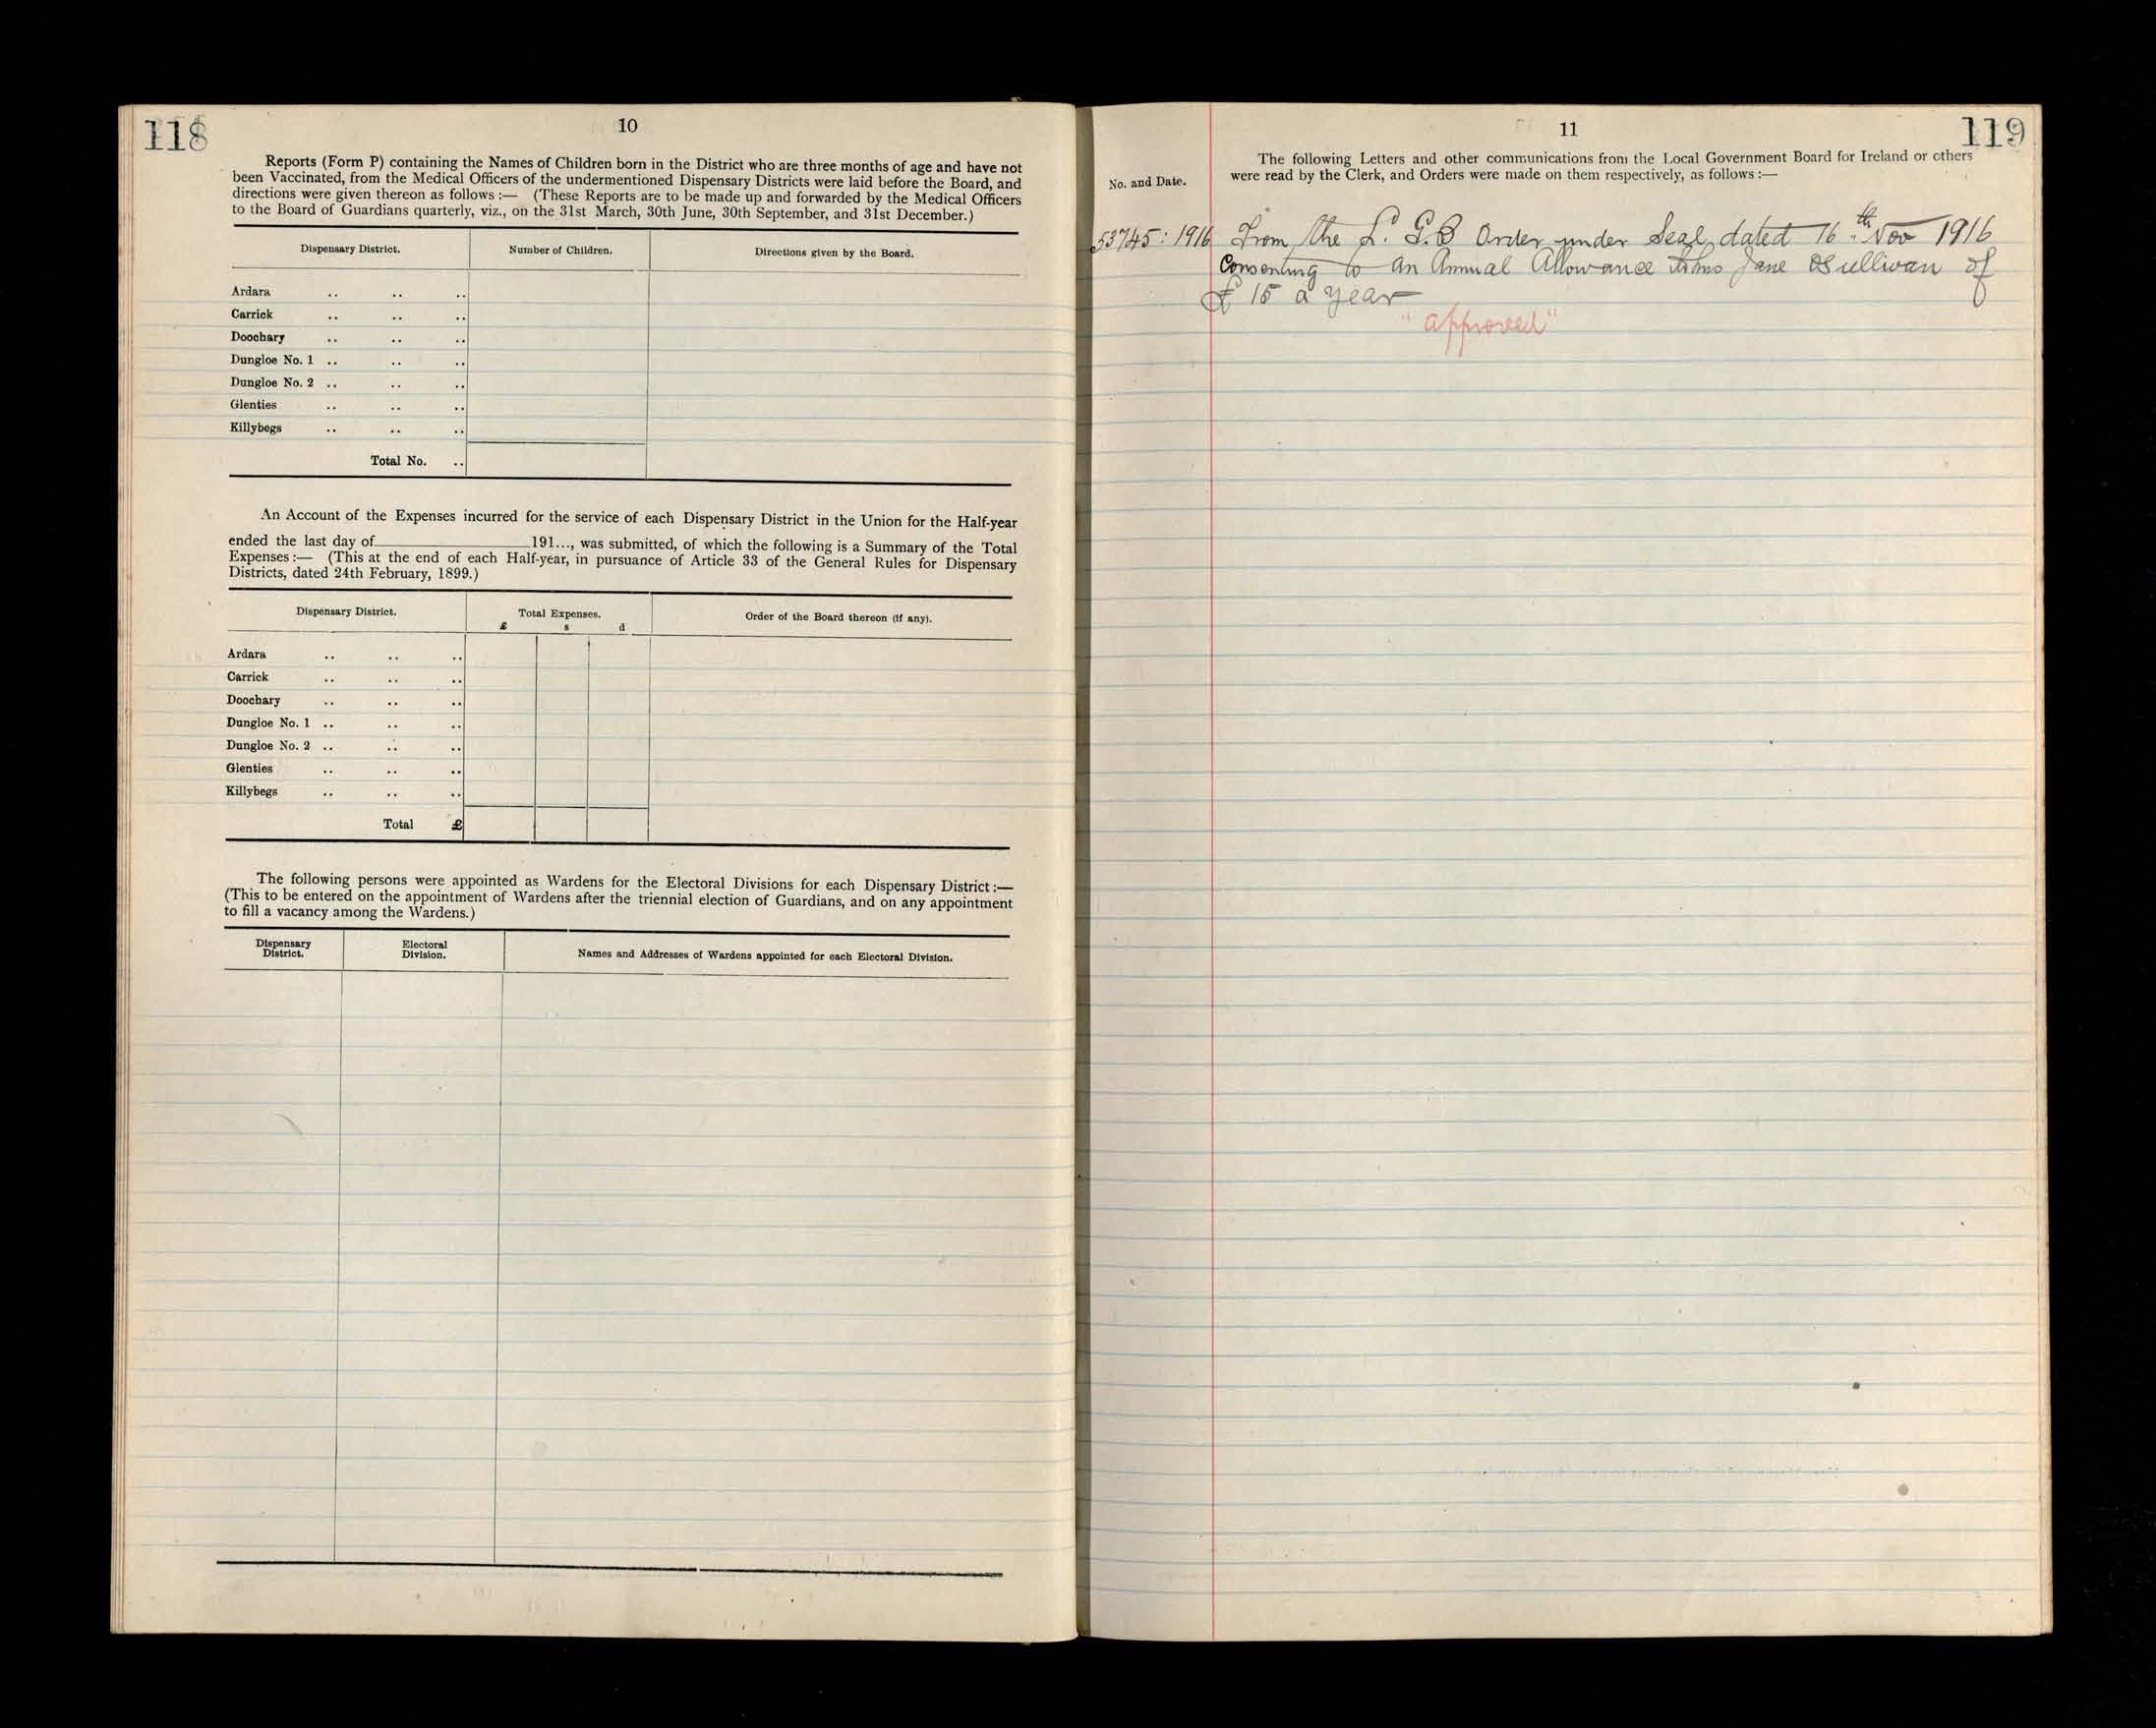 118
10
Reports (Form P) containing the Names of Children born in the District who are three months of age and have not
been Vaccinated, from the Medical Officers of the undermentioned Dispensary Districts were laid before the Board, and
directions were given thereon as follows :— (These Reports are to be made up and forwarded by the Medical Officers
to the Board of Guardians quarterly, viz., on the 31st March, 30th June, 30th September, and 31st December.)
Dispensary District. Number of Children. Directions given by the Board.
Ardara .. .. ..
Carrick .. .. ..
Doochary .. .. ..
Dungloe No. 1 .. .. ..
Dungloe No. 2 .. .. ..
Glenties .. .. ..
Killybegs .. .. ..
Total No. ..
An Account of the Expenses incurred for the service of each Dispensary District in the Union for the Half-year
ended the last day of 191..., was submitted, of which the following is a Summary of the Total
Expenses :— (This at the end of each Half-year, in pursuance of Article 33 of the General Rules for Dispensary
Districts, dated 24th February, 1899.)
Dispensary District. Total Expenses. Order of the Board thereon (if any).
£ s d
Ardara .. .. ..
Carrick .. .. ..
Doochary .. .. ..
Dungloe No. 1 .. .. ..
Dungloe No. 2 .. .. ..
Glenties .. .. ..
Killybegs .. .. ..
Total £
The following persons were appointed as Wardens for the Electoral Divisions for each Dispensary District :—
(This to be entered on the appointment of Wardens after the triennial election of Guardians, and on any appointment
to fill a vacancy among the Wardens.)
Dispensary District. Electoral Division. Names and Addresses of Wardens appointed for each Electoral Division.
11
119
The following Letters and other communications from the Local Government Board for Ireland or others
were read by the Clerk, and Orders were made on them respectively, as follows :—
No. and Date.
53745: 1916 From the L. G. B Order under Seal dated 16th Nov 1916
Consenting to an Annual Allowance Jane O'Sullivan of
£ 15 a year
"approved"